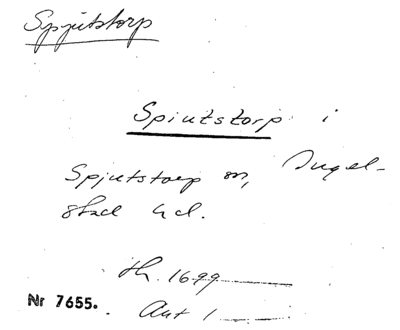 Spjutstorp
Spiutstorp i
Spjutstorp sn, Ingel-
stad hd.
th. 1699
Nr 7655. Ant 1